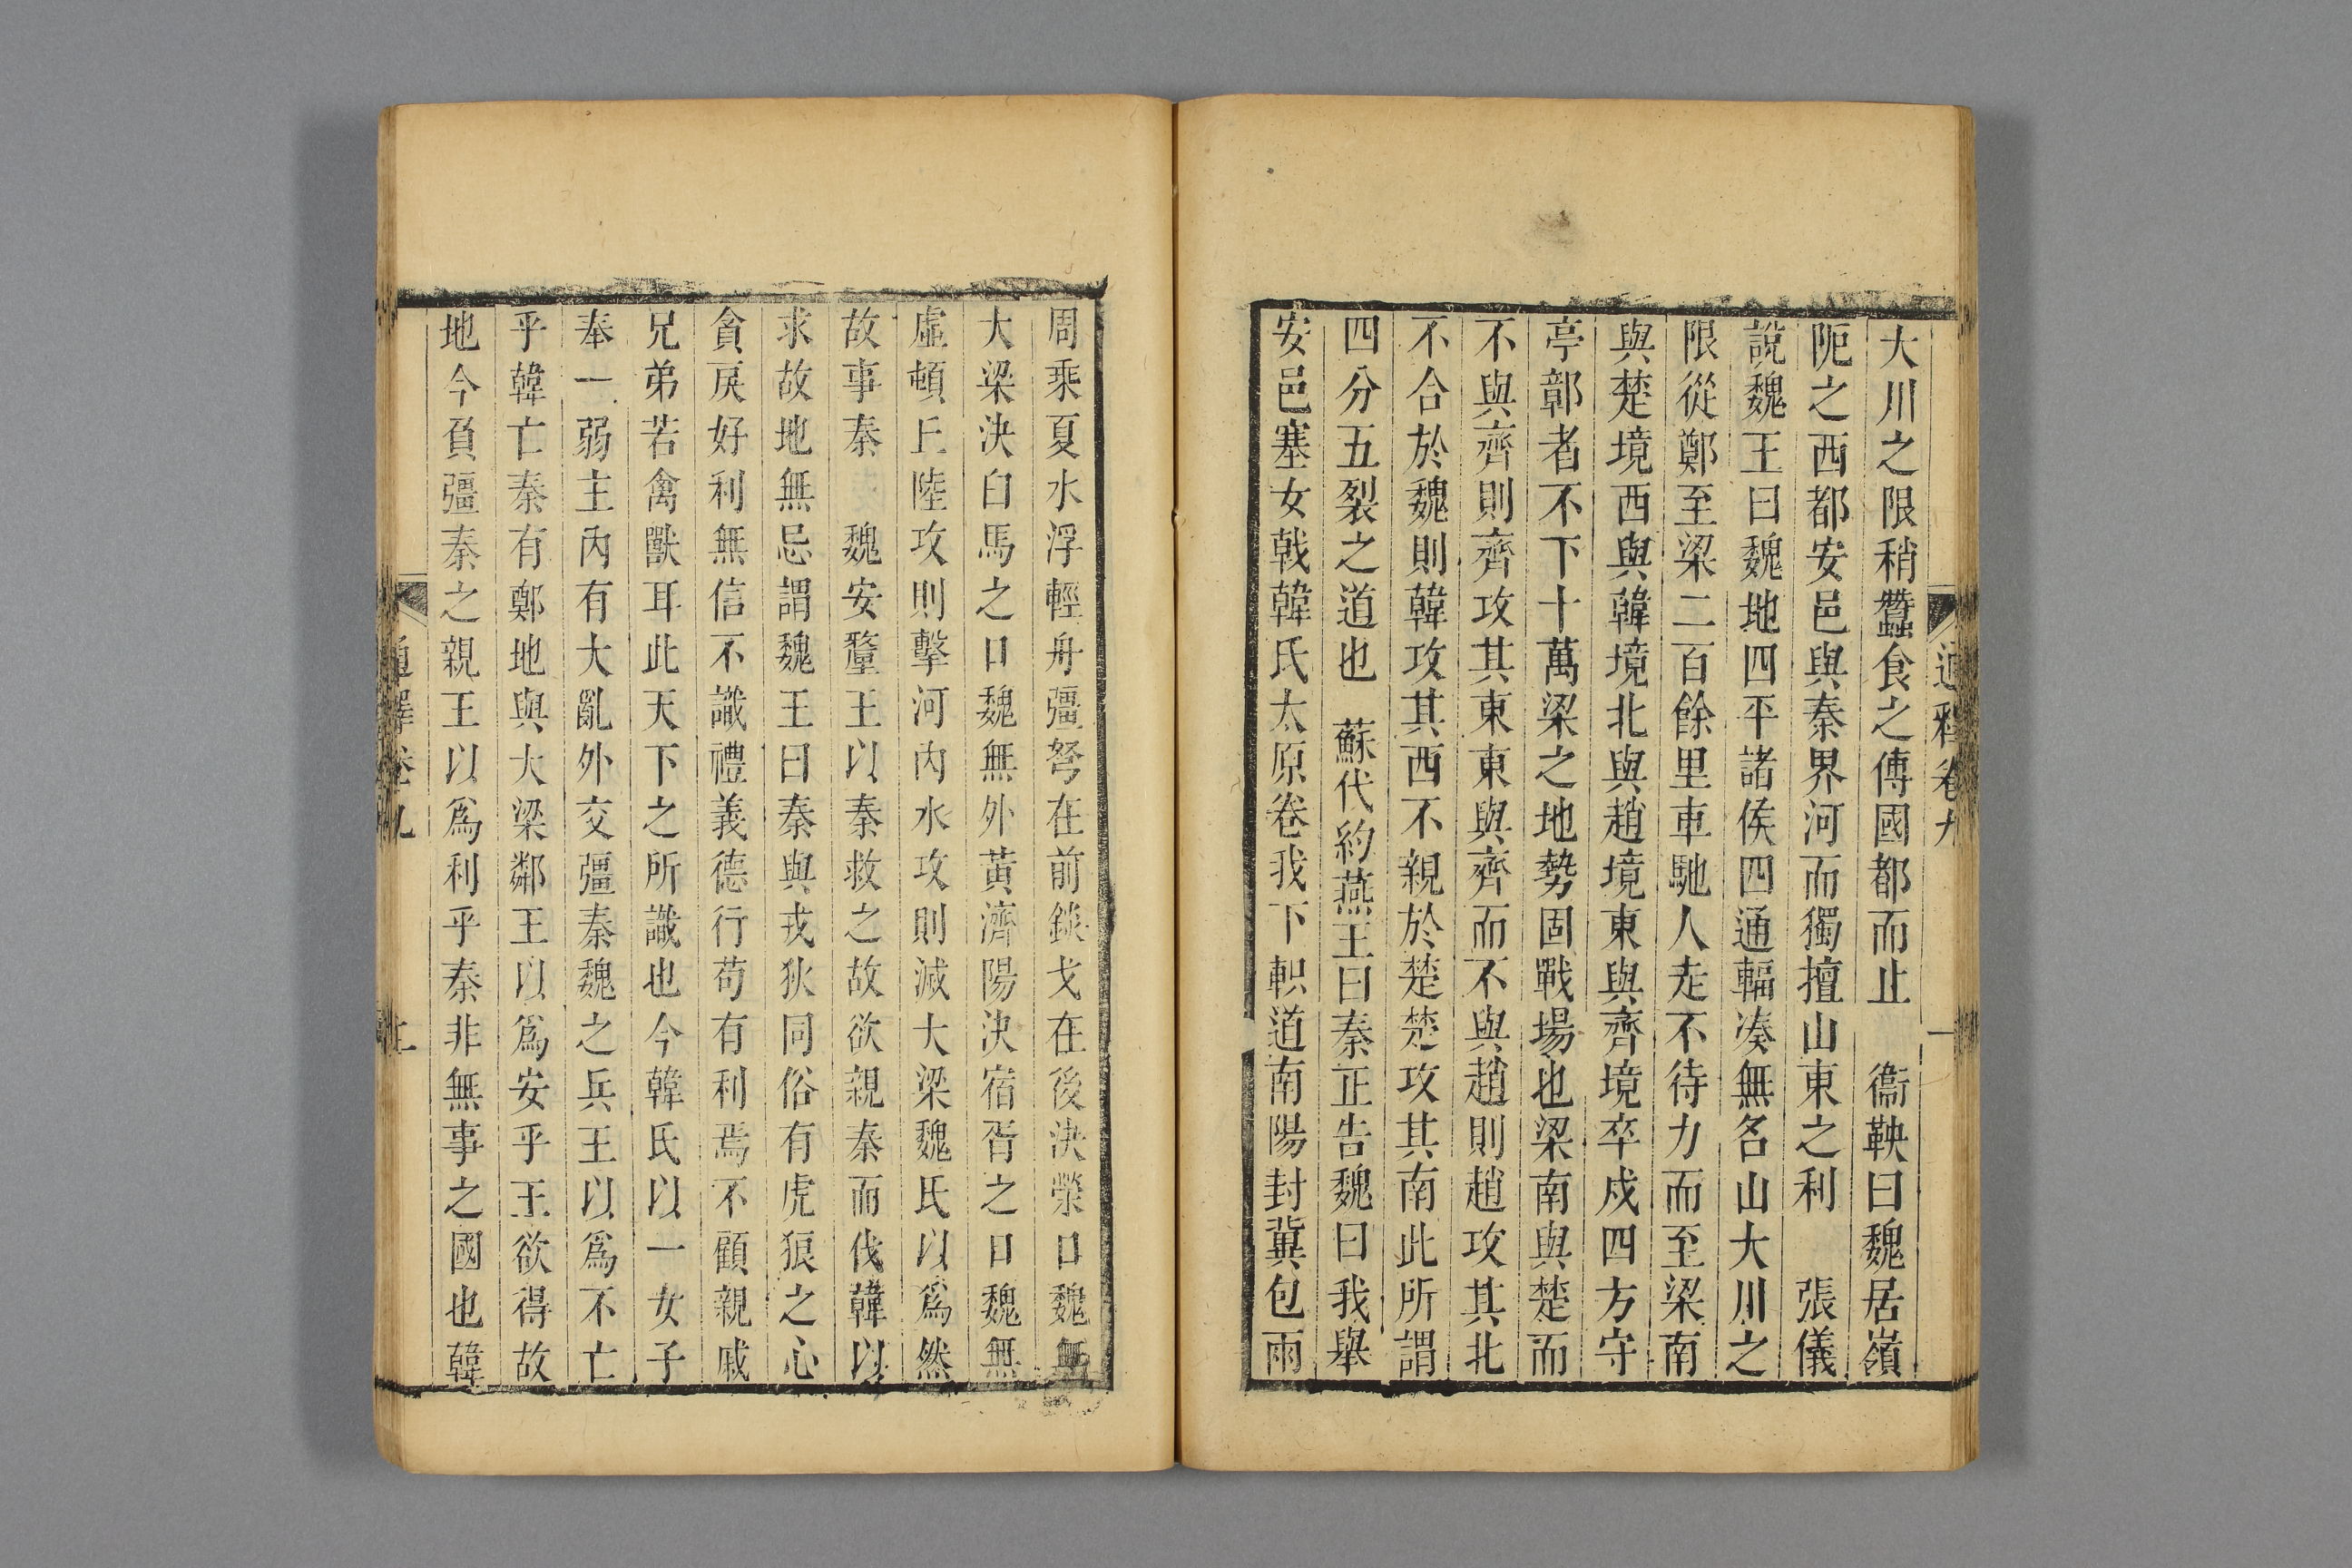 通釋卷九
大川之限稍蠶食之傅國都而止　衞鞅曰魏居嶺
阨之西都安邑與秦界河而獨擅山東之利　張儀
說魏王曰魏地四平諸侯四通輻湊無名山大川之
限從鄭至梁二百餘里車馳人走不待力而至梁南
與楚境西與韓境北與趙境東與齊境卒戍四方守
亭鄣者不下十萬梁之地勢固戰場也梁南與楚而
不與齊則齊攻其東東與齊而不與趙則趙攻其北
不合於魏則韓攻其西不親於楚楚攻其南此所謂
四分五裂之道也　蘇代約燕王曰秦正告魏曰我舉
安邑塞女戟韓氏太原卷我下軹道南陽封冀包兩
周乘夏水浮輕舟彊弩在前錟戈在後決滎口魏無
大梁決白馬之口魏無外黃濟陽決宿胥之口魏無
虛頓丘陸攻則擊河內水攻則滅大梁魏氏以爲然
故事秦　魏安釐王以秦救之故欲親秦而伐韓以
求故地無忌謂魏王曰秦與戎狄同俗有虎狼之心
貪戾好利無信不識禮義德行苟有利焉不顧親戚
兄弟若禽獸耳此天下之所識也今韓氏以一女子
奉一弱主內有大亂外交彊秦魏之兵王以爲不亡
乎韓亡秦有鄭地與大梁鄰王以爲安乎王欲得故
地今負彊秦之親王以爲利乎秦非無事之國也韓
通釋卷九